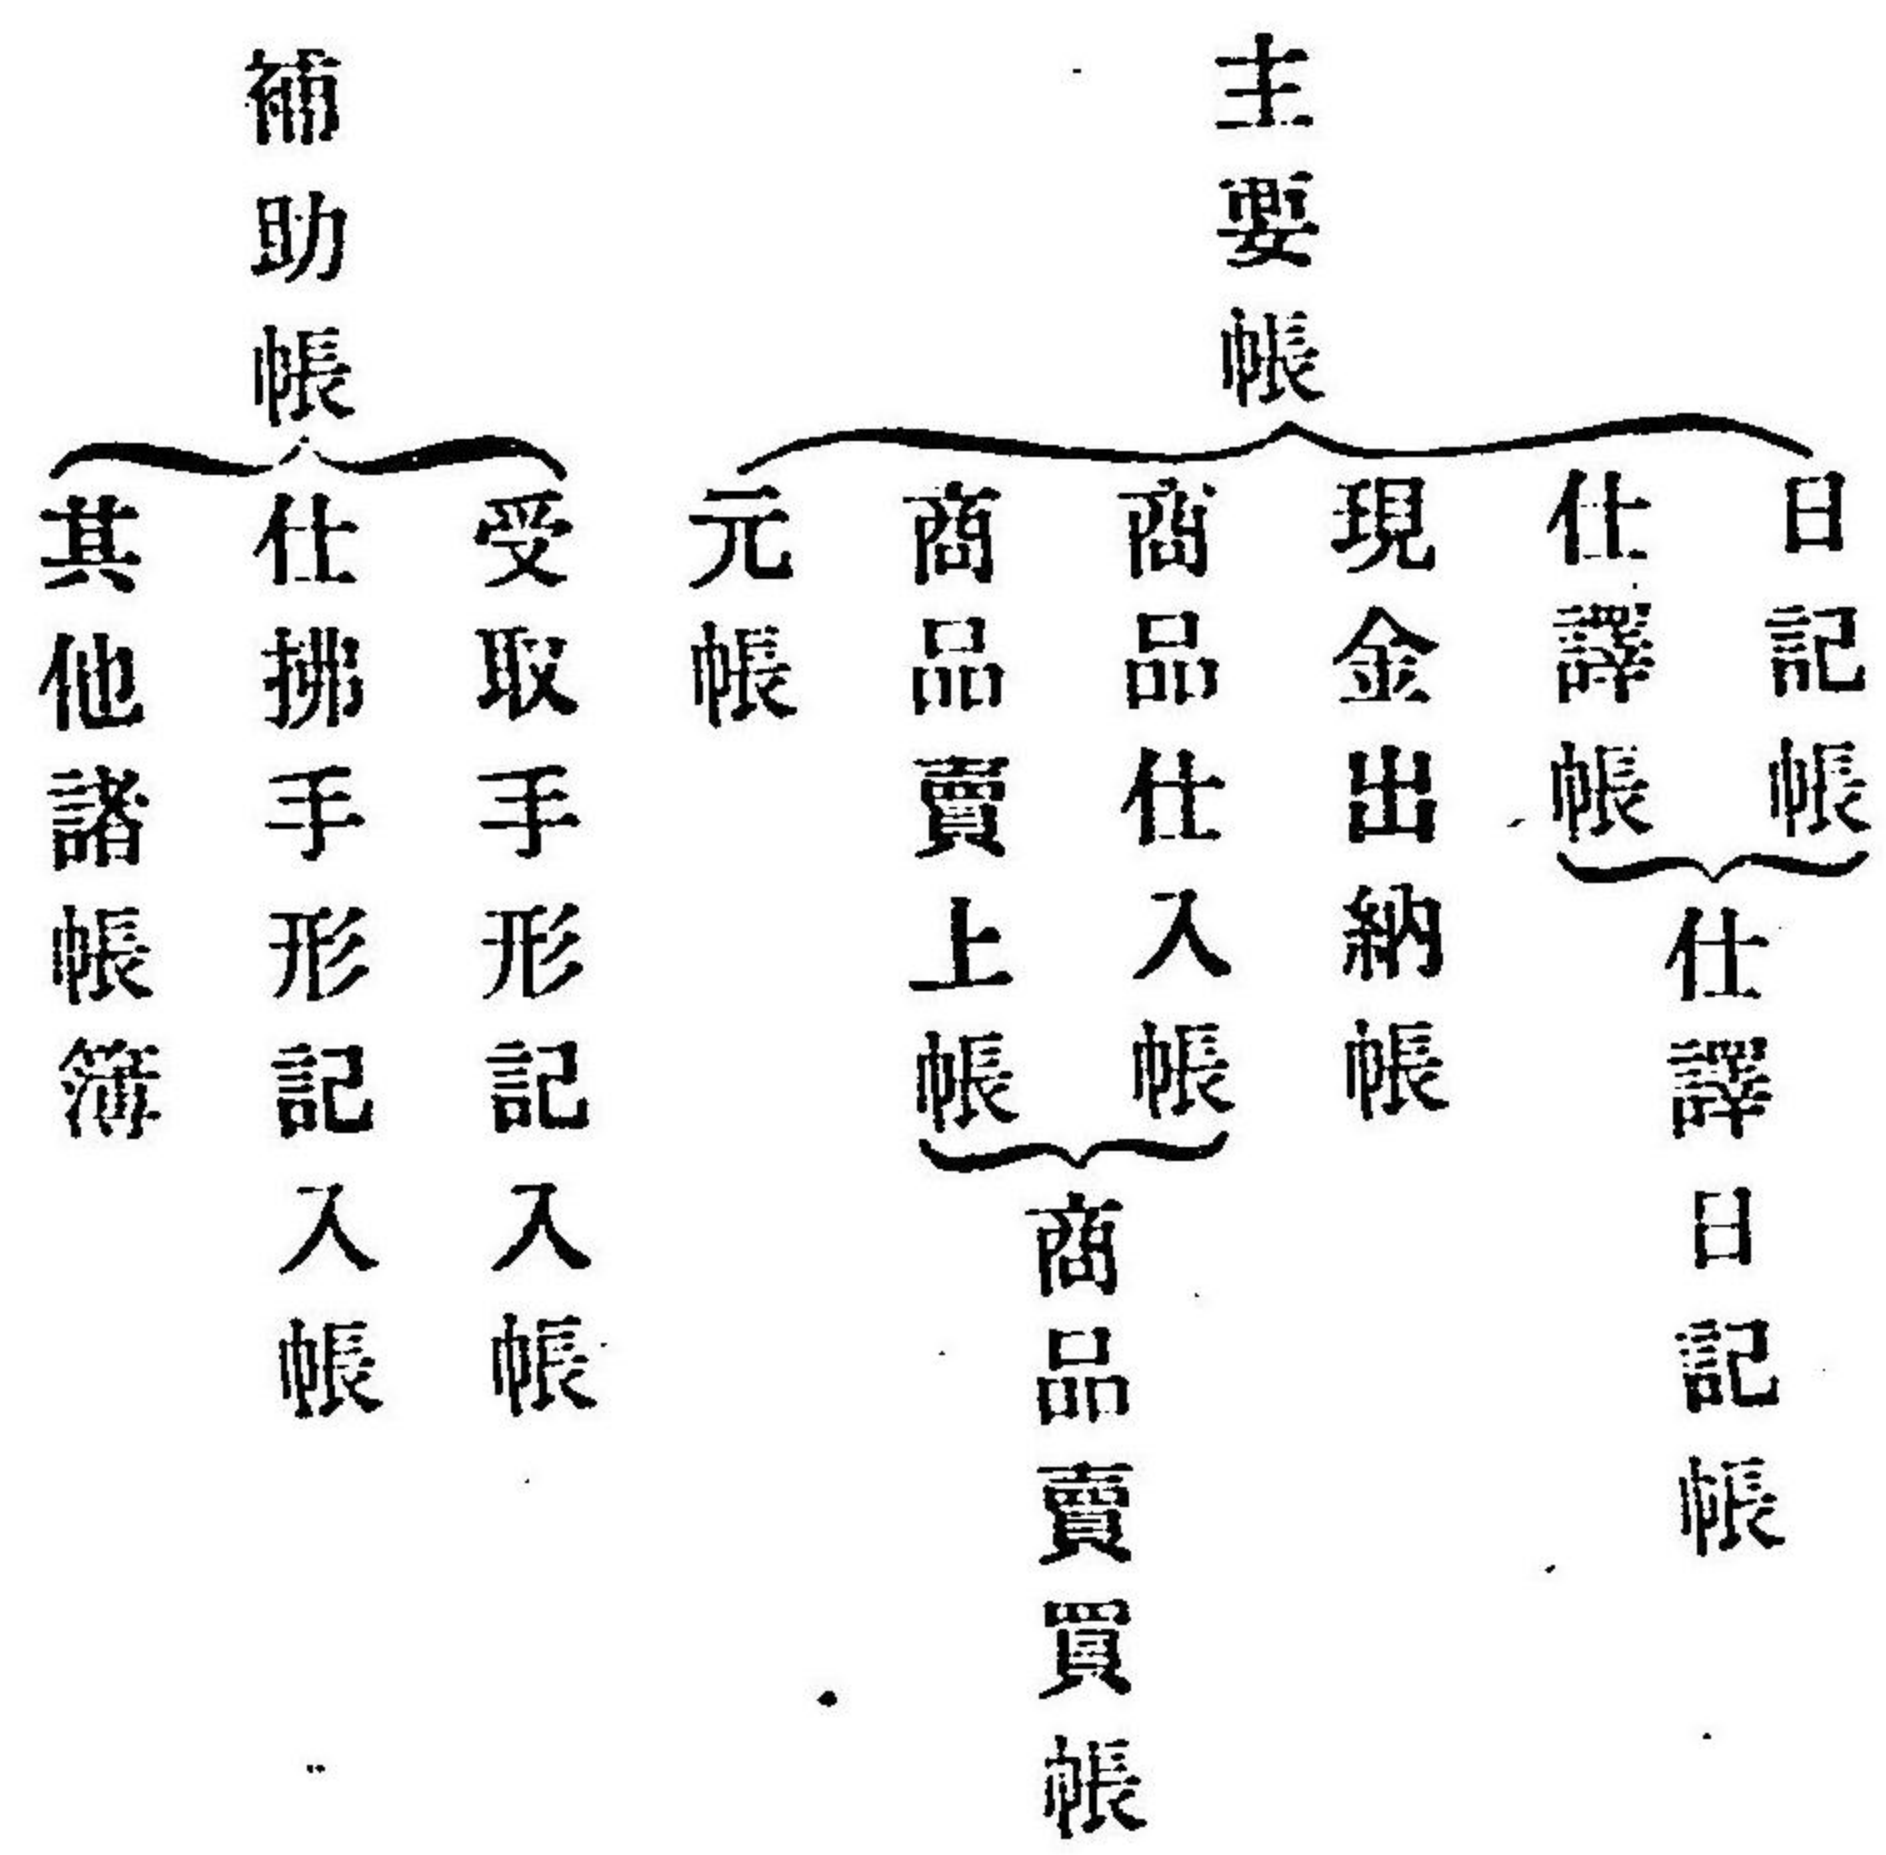 主要帳
日記帳
仕譯帳
仕譯日記帳
現金出納帳
商品仕入帳
商品賣上帳
商品賣買帳
元帳
補助帳
受取手形記入帳
仕拂手形記入帳
其他諸帳簿